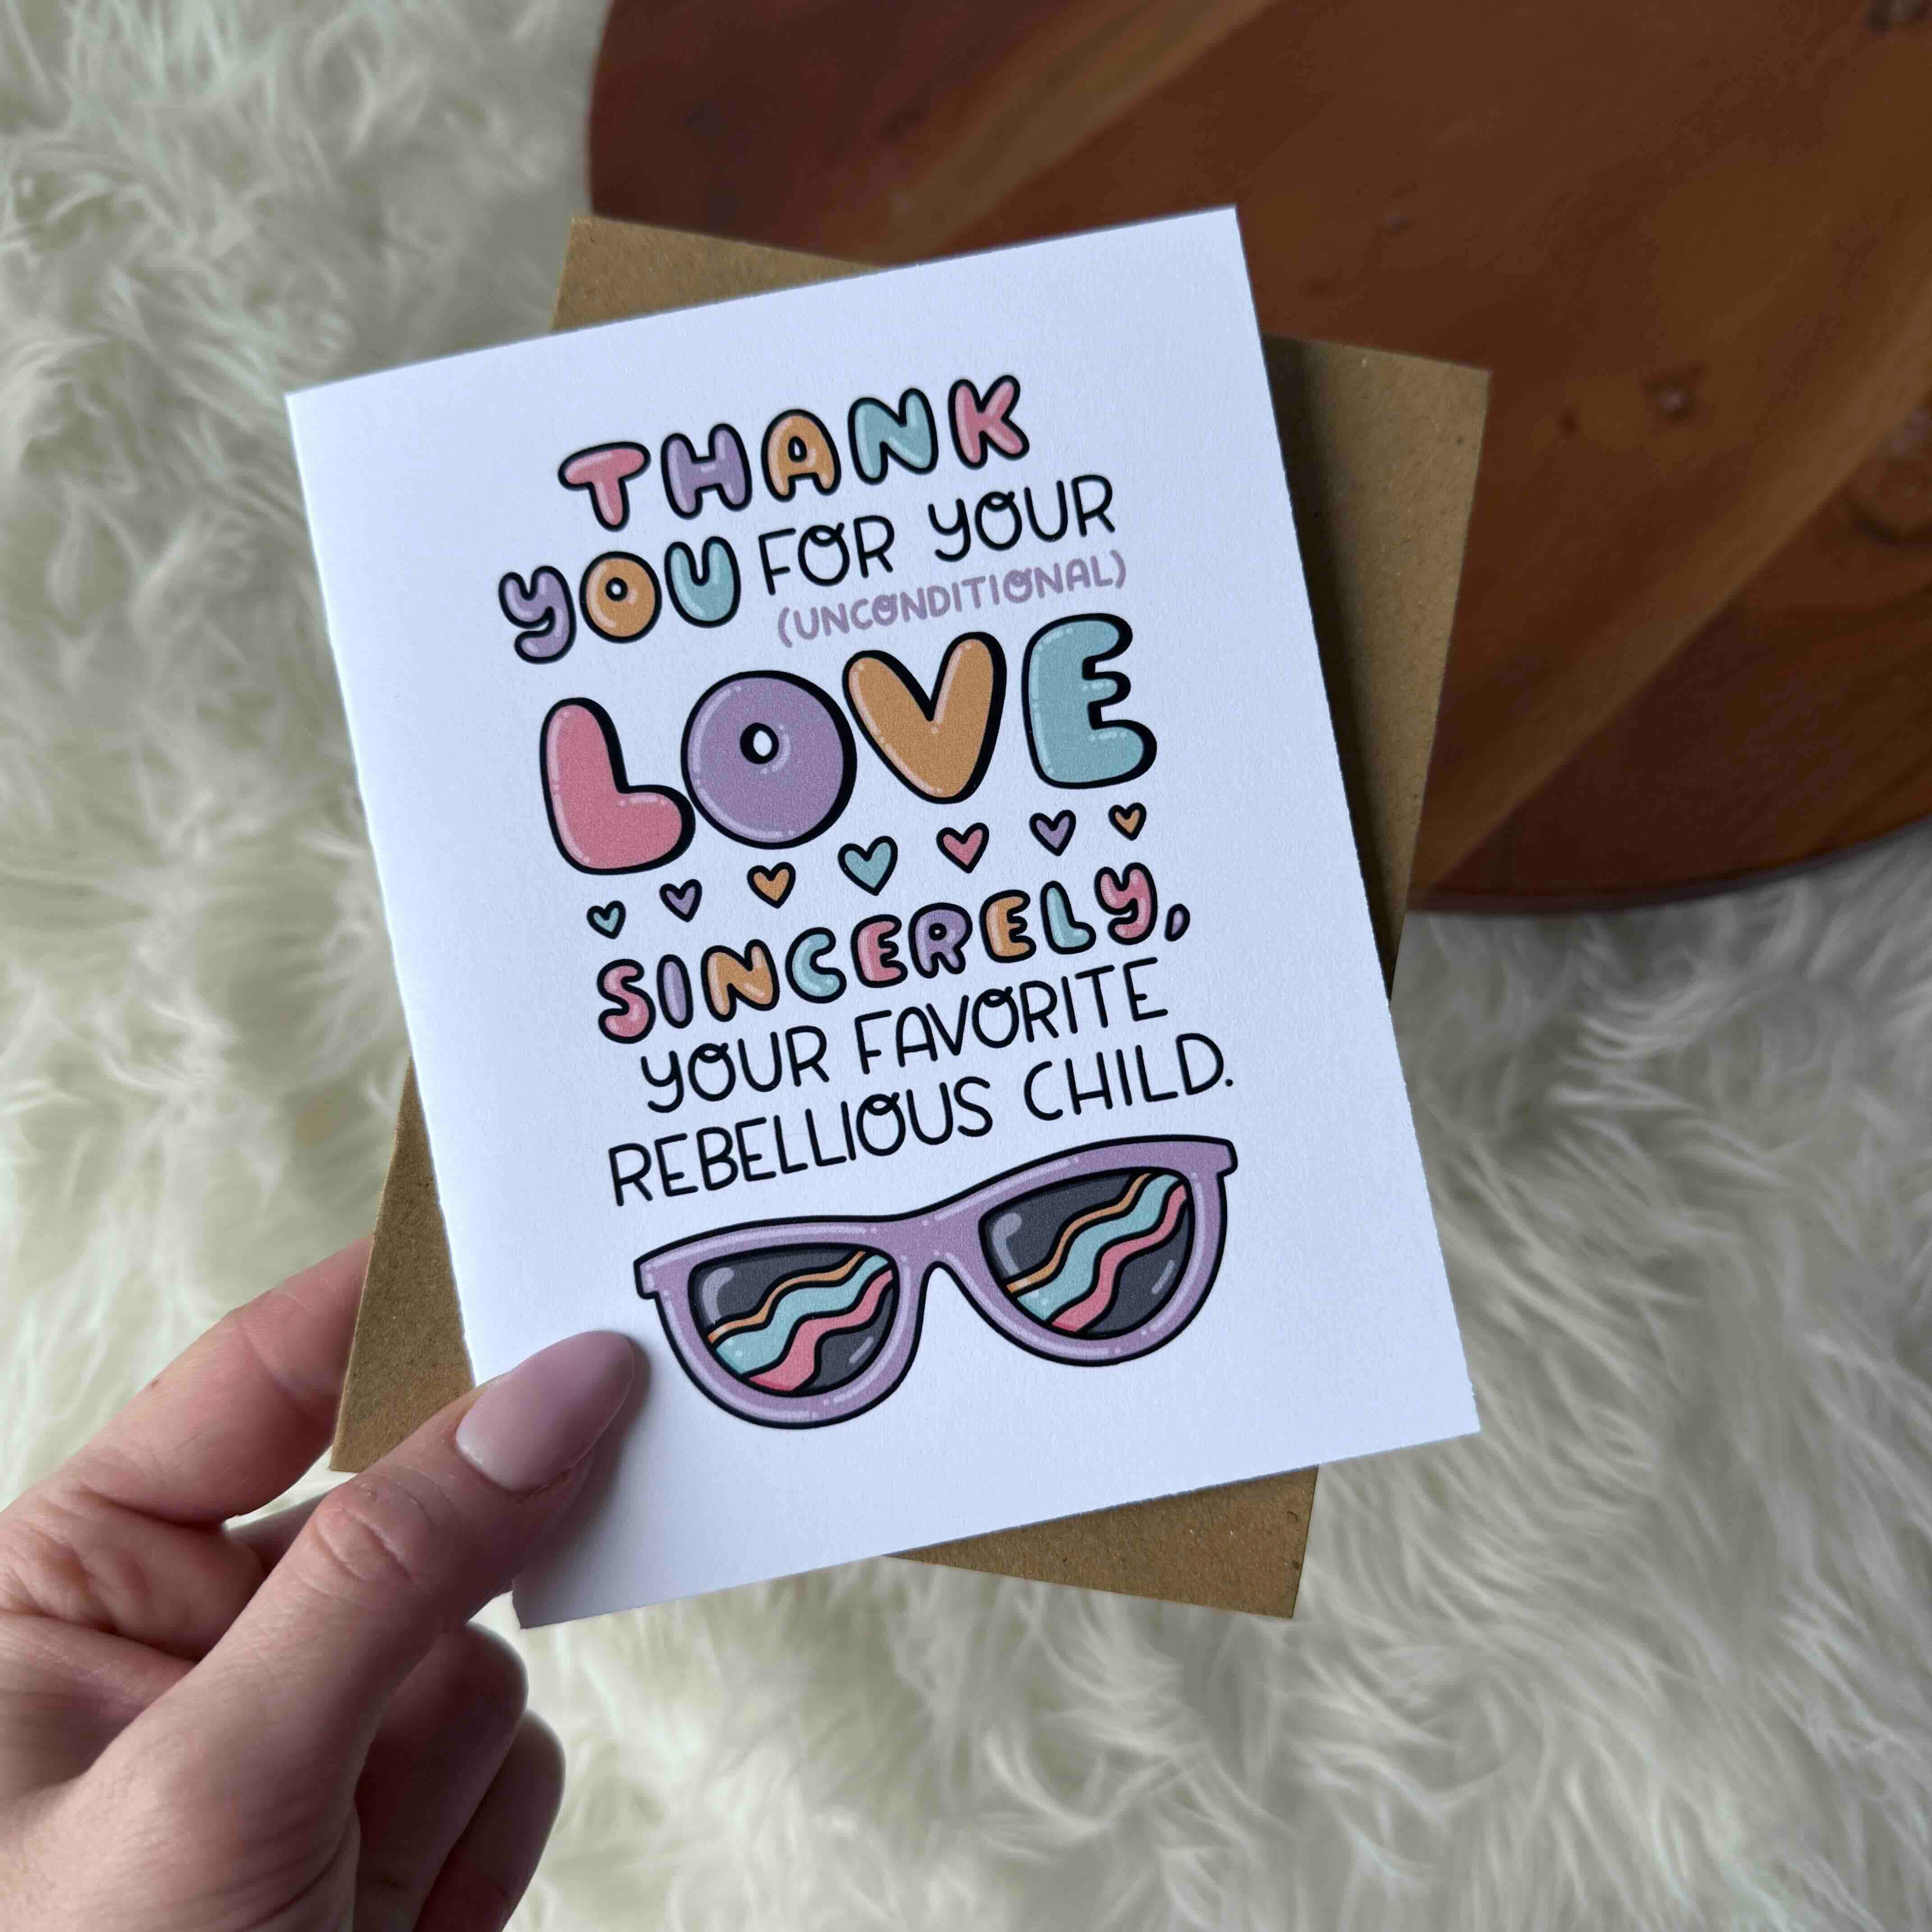 THANK
YOU FOR YOUR
(UNCONDITIONAL)
LOVE
SINCERELY,
YOUR FAVORITE
REBELLIOUS CHILD.